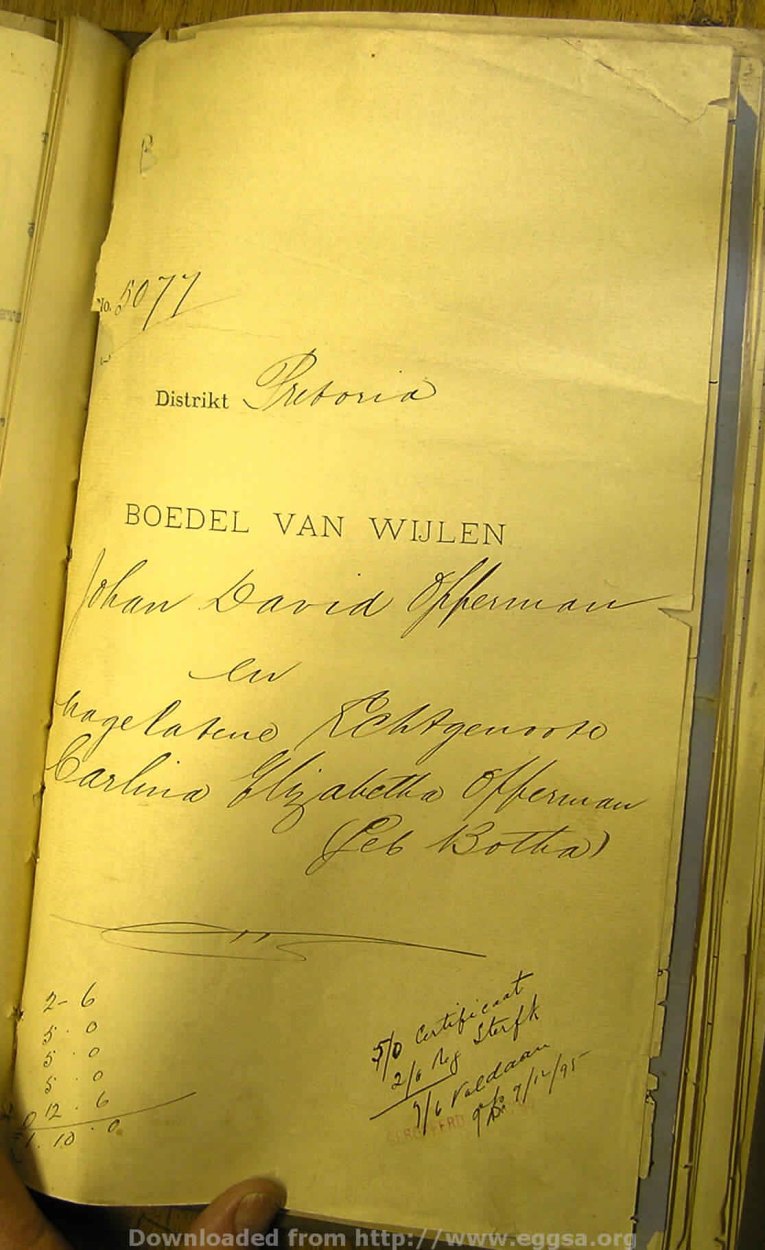 B
No. 5077
Distrikt Pretoria
BOEDEL VAN WIJLEN
Johan David Opperman
en
nagelatene Echtgenoote
Carlina Elizabetha Opperman
(Geb Botha)
2 - 6
5 . 0
5 . 0
5 . 0
12 . 6
1 . 10 . 0
5/0 Certificaat
2/6 Reg Sterfk
7/6 Voldaan
9/12/95
Downloaded from http://www.eggsa.org